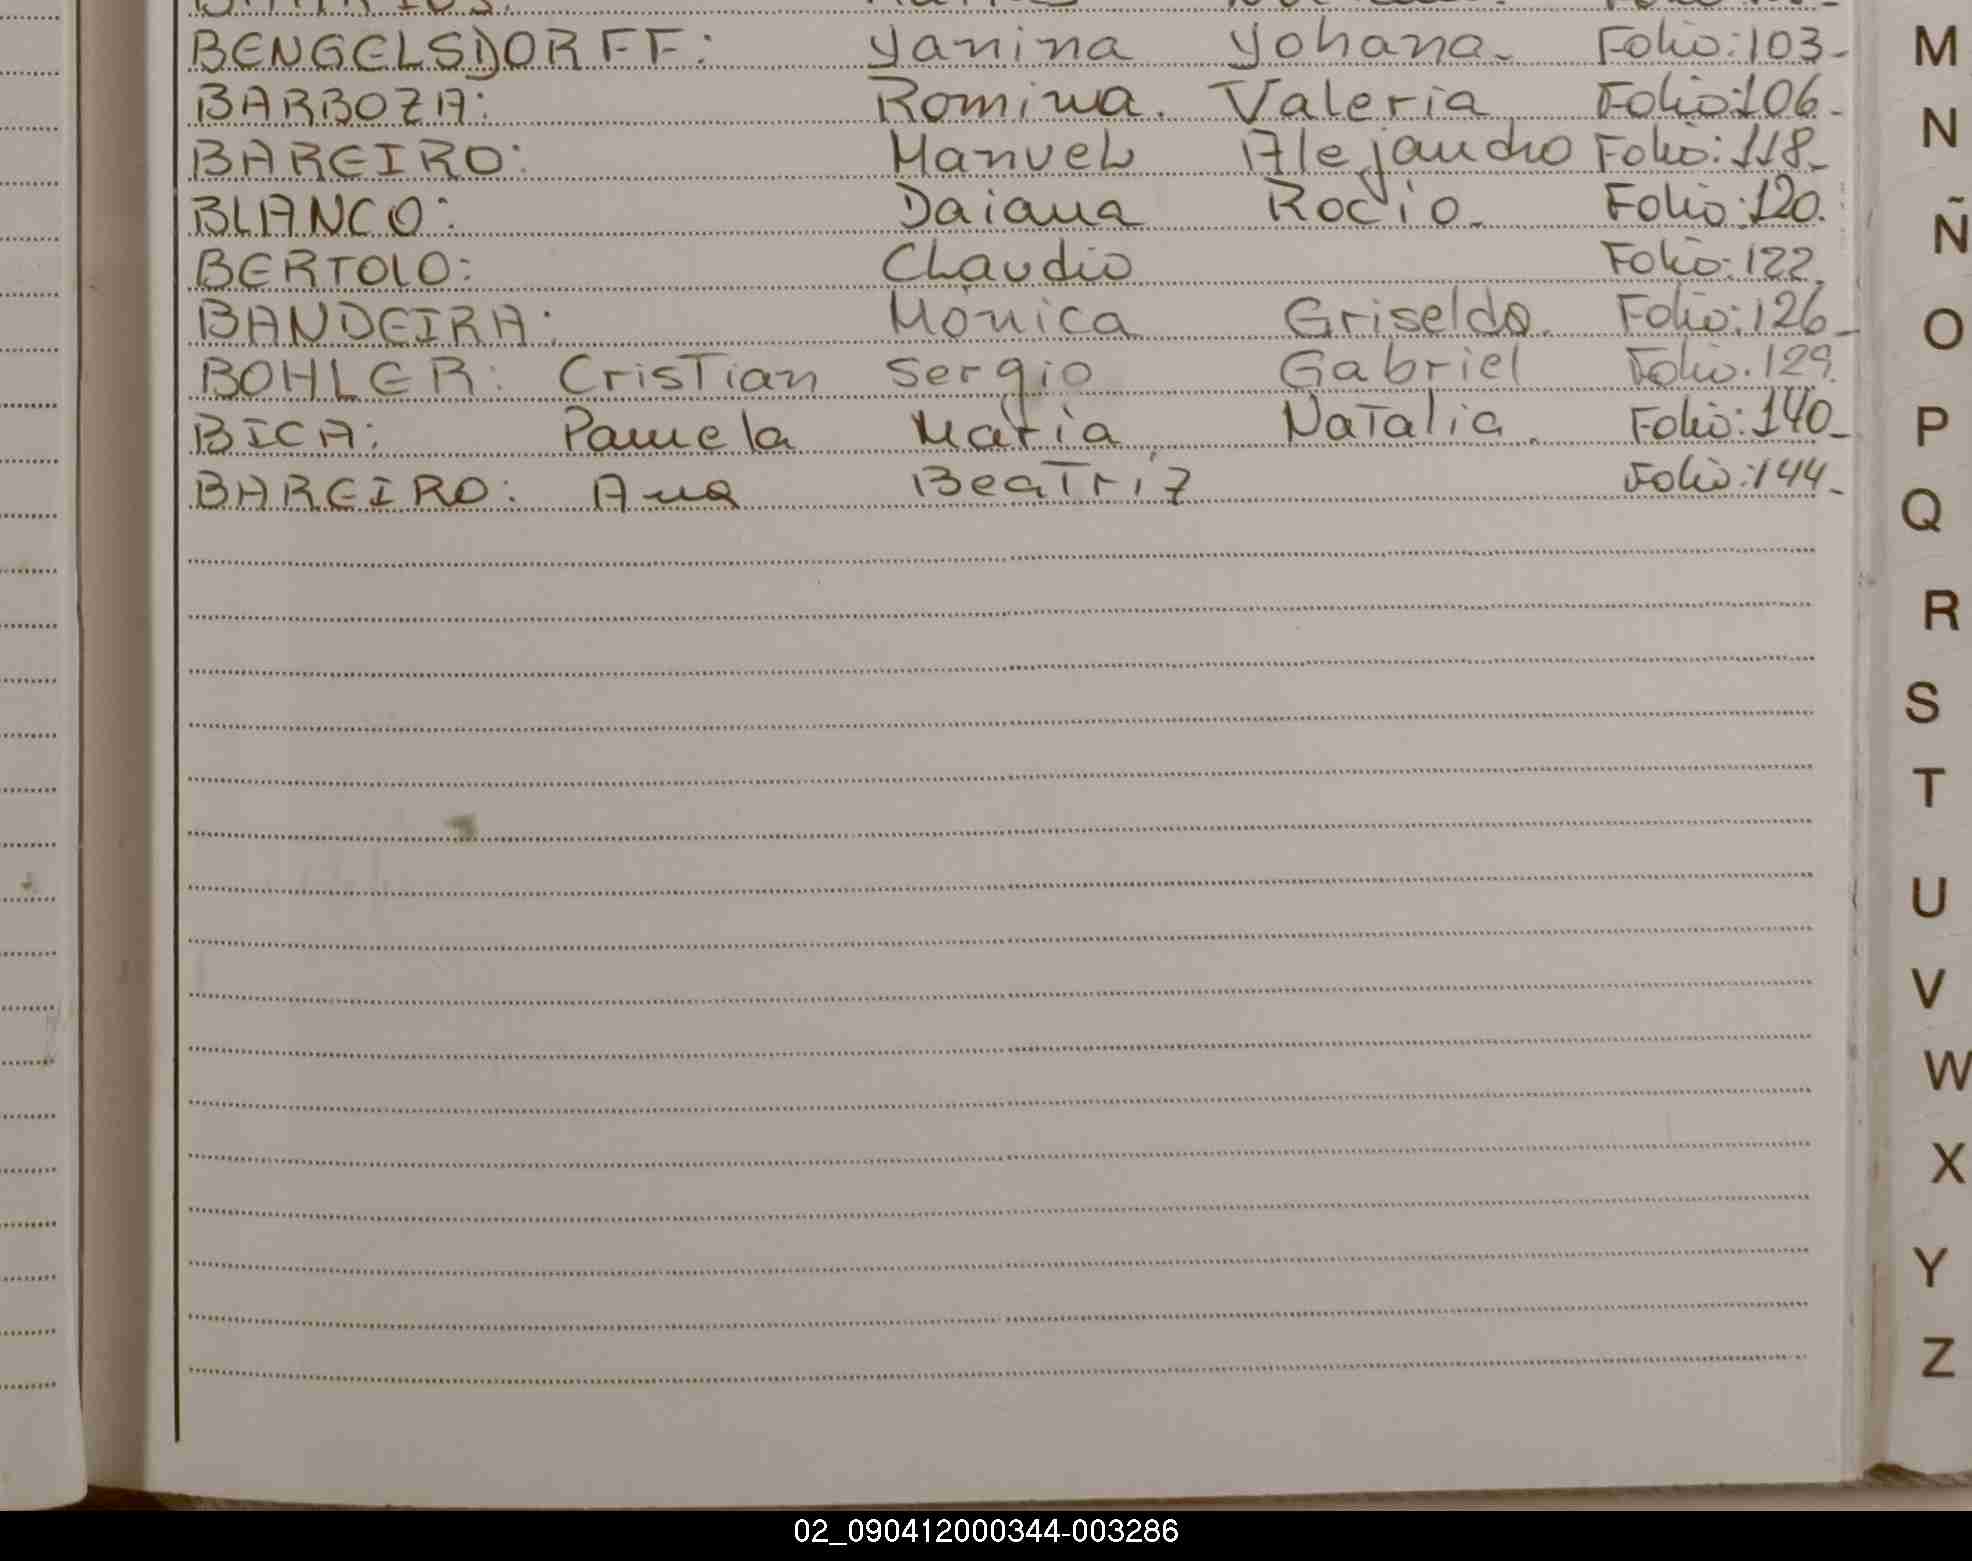 BENGELSDORFF: Yanina Yohana. Folio:103-
BARBOZA: Romina. Valeria Folio:106-
BAREIRO: Manuel Alejandro Folio:118-
BLANCO: Daiana Rocío. Folio:120.
BERTOLO: Claudio Folio:122.
BANDEIRA: Mónica Griselda. Folio:126-
BOHLER: Cristian Sergio Gabriel Folio.129.
BICA: Pamela María Natalia. Folio:140-
BAREIRO: Ana Beatriz Folio:144-
M
N
Ñ
O
P
Q
R
S
T
U
V
W
X
Y
Z
02_090412000344-003286